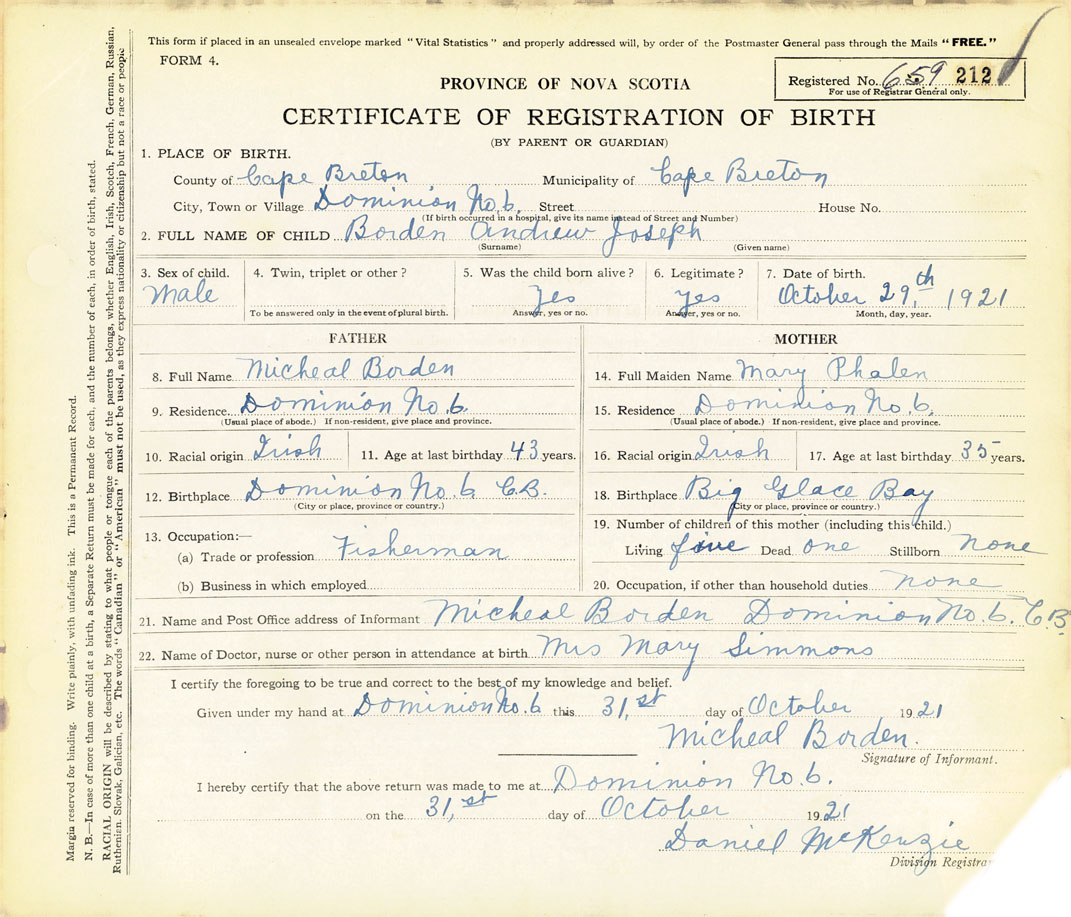 This form if placed in an unsealed envelope marked "Vital Statistics" and properly addressed will, by order of the Postmaster General pass through the Mails "FREE."
FORM 4.
Registered No. 659 212
For use of Registrar General only.
PROVINCE OF NOVA SCOTIA
CERTIFICATE OF REGISTRATION OF BIRTH
(BY PARENT OR GUARDIAN)
1. PLACE OF BIRTH.
County of Cape Breton Municipality of Cape Breton
City, Town or Village Dominion No. 6. Street House No.
(If birth occurred in a hospital, give its name instead of Street and Number)
2. FULL NAME OF CHILD Borden Andrew Joseph
(Surname) (Given name)
3. Sex of child. 4. Twin, triplet or other? 5. Was the child born alive? 6. Legitimate? 7. Date of birth.
Male Yes Yes October 29,th 1921
To be answered only in the event of plural birth. Answer, yes or no. Answer, yes or no. Month, day, year.
FATHER MOTHER
8. Full Name Micheal Borden 14. Full Maiden Name Mary Phalen
9. Residence Dominion No. 6. 15. Residence Dominion No. 6.
(Usual place of abode.) If non-resident, give place and province. (Usual place of abode.) If non-resident, give place and province.
10. Racial origin Irish 11. Age at last birthday 43 years. 16. Racial origin Irish 17. Age at last birthday 35 years.
12. Birthplace Dominion No. 6 C.B. 18. Birthplace Big Glace Bay
(City or place, province or country.) (City or place, province or country.)
13. Occupation:— 19. Number of children of this mother (including this child.)
(a) Trade or profession Fisherman Living five Dead one Stillborn None
(b) Business in which employed 20. Occupation, if other than household duties none
21. Name and Post Office address of Informant Micheal Borden Dominion No. 6. C.B.
22. Name of Doctor, nurse or other person in attendance at birth Mrs Mary Simmons
I certify the foregoing to be true and correct to the best of my knowledge and belief.
Given under my hand at Dominion No. 6 this 31,st day of October 1921
Micheal Borden.
Signature of Informant.
I hereby certify that the above return was made to me at Dominion No. 6.
on the 31,st day of October 1921
Daniel McKenzie
Division Registrar
Margin reserved for binding. Write plainly, with unfading ink. This is a Permanent Record.
N. B.—In case of more than one child at a birth, a Separate Return must be made for each, and the number of each, in order of birth, stated.
RACIAL ORIGIN will be described by stating to what people or tongue each of the parents belongs, whether English, Irish, Scotch, French, German, Russian,
Ruthenian, Slovak, Galician, etc. The words "Canadian" or "American" must not be used, as they express nationality or citizenship but not a race or people